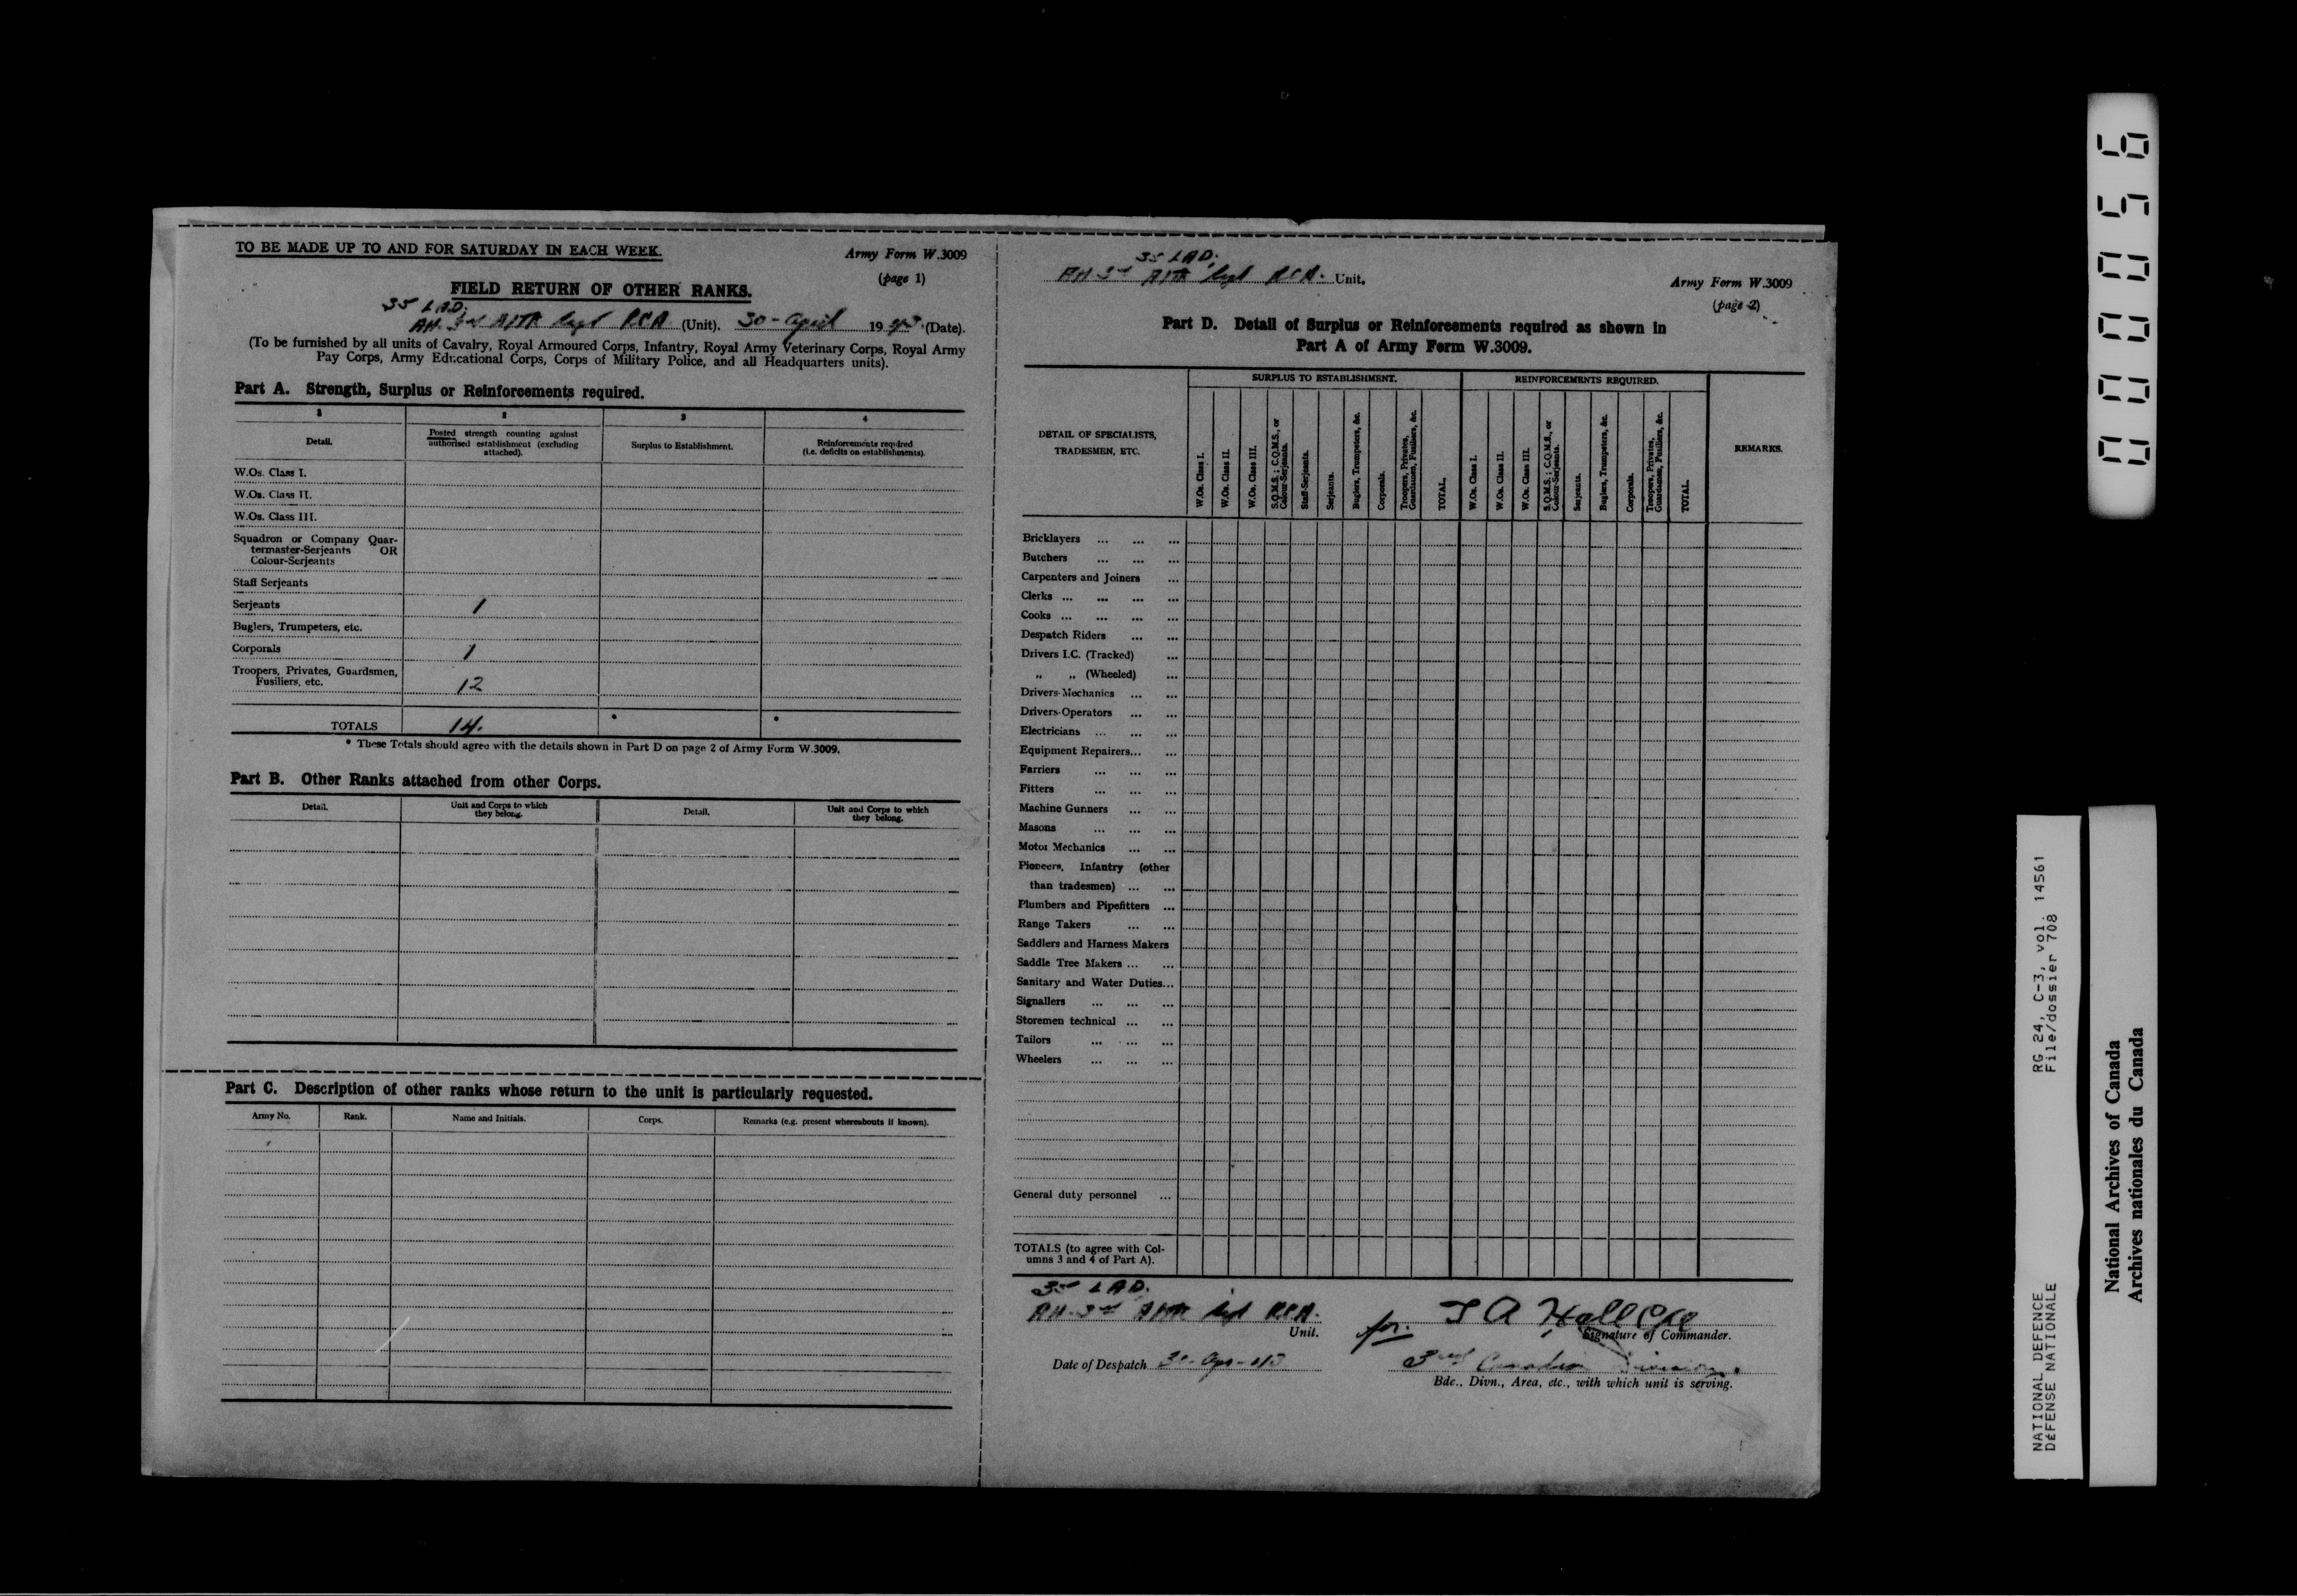 TO BE MADE UP TO AND FOR SATURDAY IN EACH WEEK.
Army Form W.3009
(page 1)
FIELD RETURN OF OTHER RANKS.
35 LAD.
RCA (Unit). 30 - April 1943 (Date).
(To be furnished by all units of Cavalry, Royal Armoured Corps, Infantry, Royal Army Veterinary Corps, Royal Army
Pay Corps, Army Educational Corps, Corps of Military Police, and all Headquarters units).
Part A. Strength, Surplus or Reinforcements required.
1 2 3 4
Detail.
Posted strength counting against
authorised establishment (excluding
attached).
Surplus to Establishment.
Reinforcements required
(i.e. deficits on establishments).
W.Os. Class I.
W.Os. Class II.
W.Os. Class III.
Squadron or Company Quar-
termaster-Serjeants OR
Colour-Serjeants
Staff Serjeants
Serjeants 1
Buglers, Trumpeters, etc.
Corporals 1
Troopers, Privates, Guardsmen,
Fusiliers, etc. 12
TOTALS 14. * *
* These Totals should agree with the details shown in Part D on page 2 of Army Form W.3009.
Part B. Other Ranks attached from other Corps.
Detail.
Unit and Corps to which
they belong.
Detail.
Unit and Corps to which
they belong.
Part C. Description of other ranks whose return to the unit is particularly requested.
Army No. Rank. Name and Initials. Corps. Remarks (e.g. present whereabouts if known).
35 LAD.
RCA. Unit.
Army Form W.3009
(page 2)
Part D. Detail of Surplus or Reinforcements required as shown in
Part A of Army Form W.3009.
DETAIL OF SPECIALISTS,
TRADESMEN, ETC.
SURPLUS TO ESTABLISHMENT.
W.Os. Class I.
W.Os. Class II.
W.Os. Class III.
S.Q.M.S.; C.Q.M.S., or
Colour-Serjeants.
Staff-Serjeants.
Serjeants.
Buglers, Trumpeters, &c.
Corporals.
Troopers, Privates,
Guardsmen, Fusiliers, &c.
TOTAL.
REINFORCEMENTS REQUIRED.
W.Os. Class I.
W.Os. Class II.
W.Os. Class III.
S.Q.M.S.; C.Q.M.S., or
Colour-Serjeants.
Serjeants.
Buglers, Trumpeters, &c.
Corporals.
Troopers, Privates,
Guardsmen, Fusiliers, &c.
TOTAL.
REMARKS.
Bricklayers ... ... ...
Butchers ... ... ...
Carpenters and Joiners ...
Clerks ... ... ... ...
Cooks ... ... ... ...
Despatch Riders ... ...
Drivers I.C. (Tracked) ...
„ „ (Wheeled) ...
Drivers-Mechanics ... ...
Drivers-Operators ... ...
Electricians ... ... ...
Equipment Repairers... ...
Farriers ... ... ...
Fitters ... ... ...
Machine Gunners ... ...
Masons ... ... ...
Motor Mechanics ... ...
Pioneers, Infantry (other
than tradesmen) ... ...
Plumbers and Pipefitters ...
Range Takers ... ...
Saddlers and Harness Makers
Saddle Tree Makers ... ...
Sanitary and Water Duties...
Signallers ... ... ...
Storemen technical ... ...
Tailors ... ... ...
Wheelers ... ... ...
General duty personnel ...
TOTALS (to agree with Col-
umns 3 and 4 of Part A).
35 LAD.
RCA.
Unit.
for. Hall
Signature of Commander.
Date of Despatch 30-Apr-43
3rd Canadian Division.
Bde., Divn., Area, etc., with which unit is serving.
000056
NATIONAL DEFENCE RG 24, C-3, vol. 14561
DÉFENSE NATIONALE File/dossier 708
National Archives of Canada
Archives nationales du Canada